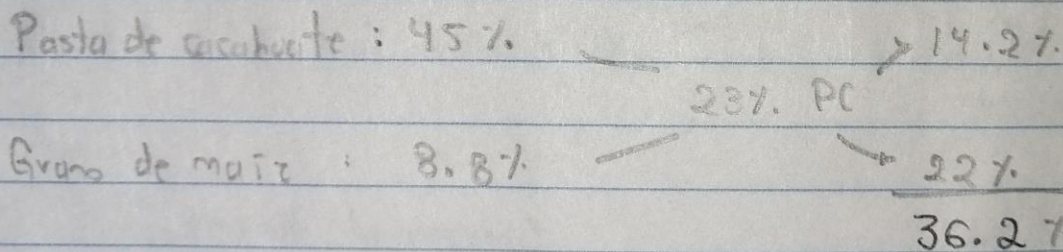 Pasta de cacahuate : 45 %. 14.2 %.
23 %. PC
Grano de maiz : 8.8 %. 22 %.
36.2 %